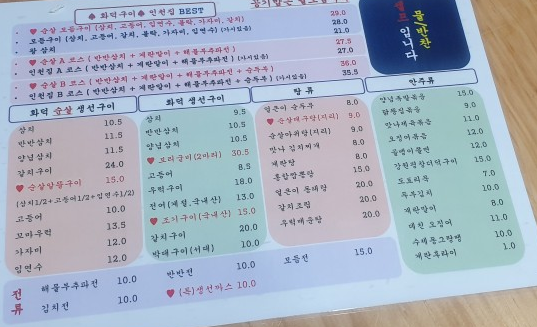 ♠ 화덕구이 ♠ 인천집 BEST
♥ 순살 모듬구이 (삼치, 고등어, 임연수, 볼락, 가자미, 갈치) 29.0
모듬구이 (삼치, 고등어, 갈치, 볼락, 가자미, 임연수) (가시있음) 28.0
왕 삼치 21.0
♥ 순살 A 코스 ( 반반삼치 + 계란말이 + 해물부추전 ) 27.5
인천집 A 코스 ( 반반삼치 + 계란말이 + 해물부추전 ) (가시있음) 27.0
♥ 순살 B 코스 ( 반반삼치 + 계란말이 + 해물부추전 + 순두부 ) 36.0
인천집 B 코스 ( 반반삼치 + 계란말이 + 해물부추전 + 순두부 ) (가시있음) 35.5
셀프 입니다
물/반찬
화덕 순살 생선구이
삼치 10.5
반반삼치 11.5
양념삼치 11.5
갈치구이 24.0
♥ 순살알뜰구이 15.0
(삼치1/2+고등어1/2+임연수1/2)
고등어 10.0
꼬마우럭 13.5
가자미 12.0
임연수 12.0
화덕 생선구이
삼치 9.5
반반삼치 10.5
양념삼치 10.5
♥ 보리굴비(2마리) 30.5
고등어 8.5
우럭구이 18.0
전어(계절,국내산) 13.0
♥ 조기구이(국내산) 15.0
갈치구이 20.0
박대구이(서대) 10.0
탕 류
얼큰이 순두부 8.0
♥ 순살대구탕(지리) 9.0
순살아귀탕(지리) 9.0
맛나 김치찌개 8.0
계란탕 8.0
홍합짬뽕탕 15.0
얼큰이 동태탕 20.0
갈치조림 20.0
우럭매운탕 20.0
안주류
양념족발볶음 15.0
9.0
맛나제육볶음 11.0
오징어볶음 12.0
골뱅이쫄면 12.0
강원꽝장더덕구이 15.0
도토리묵 7.0
두부김치 10.0
계란말이 8.0
데친 오징어 11.0
수제동그랑땡 10.0
계란후라이 1.0
전류
해물부추파전 10.0
김치전 10.0
반반전 10.0
♥ (특)생선까스 10.0
모듬전 15.0